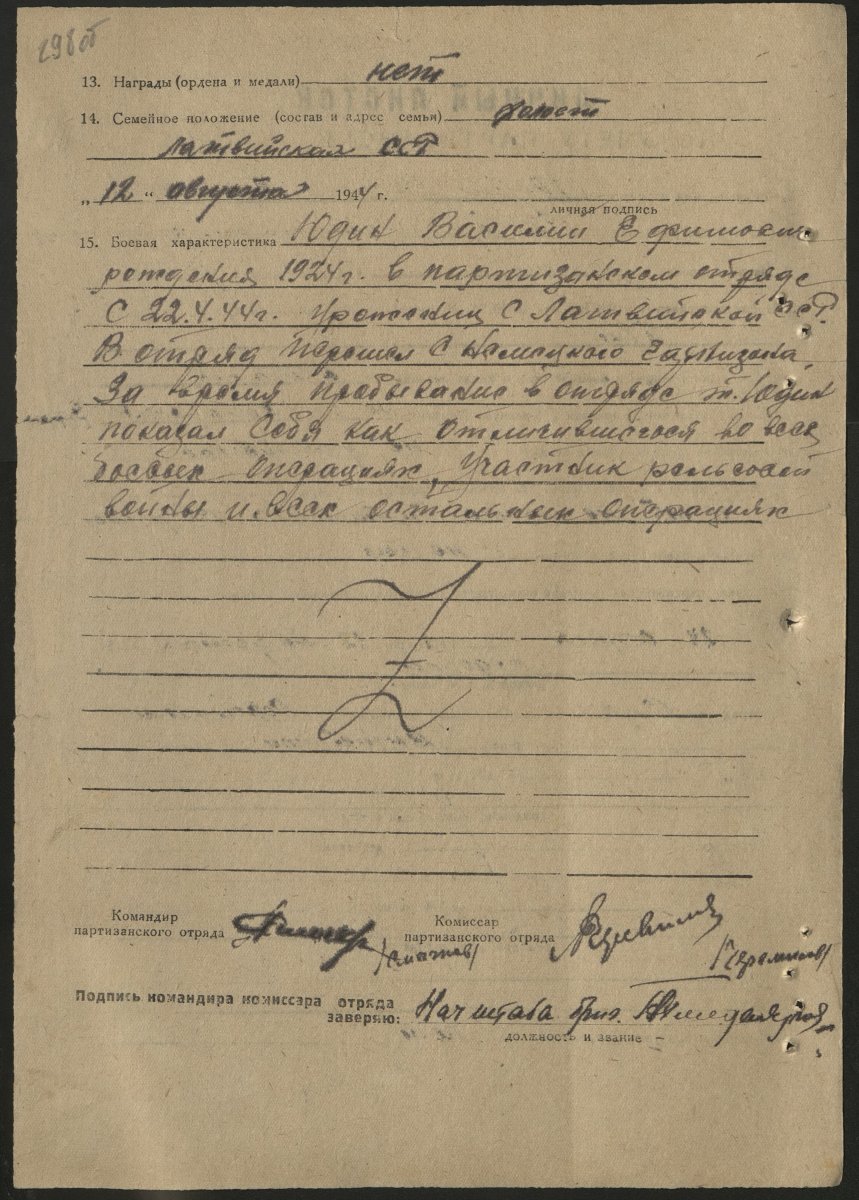 298об
13. Награды (ордена и медали) нет
14. Семейное положение (состав и адрес семьи) холост
Латвийская ССР
„12“ августа 1944 г.
личная подпись
15. Боевая характеристика Юдин Василий Ефимович
рождения 1924г. в партизанском отряде
с 22.4.44г. Уроженец с Латвийской ССР.
В отряд перешел с немецкого гарнизона
За время пребывание в отряде т. Юдин
показал себя как отличившегося во всех
боевых операциях, Участник рельсовой
войны и всех остальных операциях
Командир
партизанского отряда
Комиссар
партизанского отряда
Подпись командира комиссара отряда
заверяю: Нач штаба бриг.
должность и звание